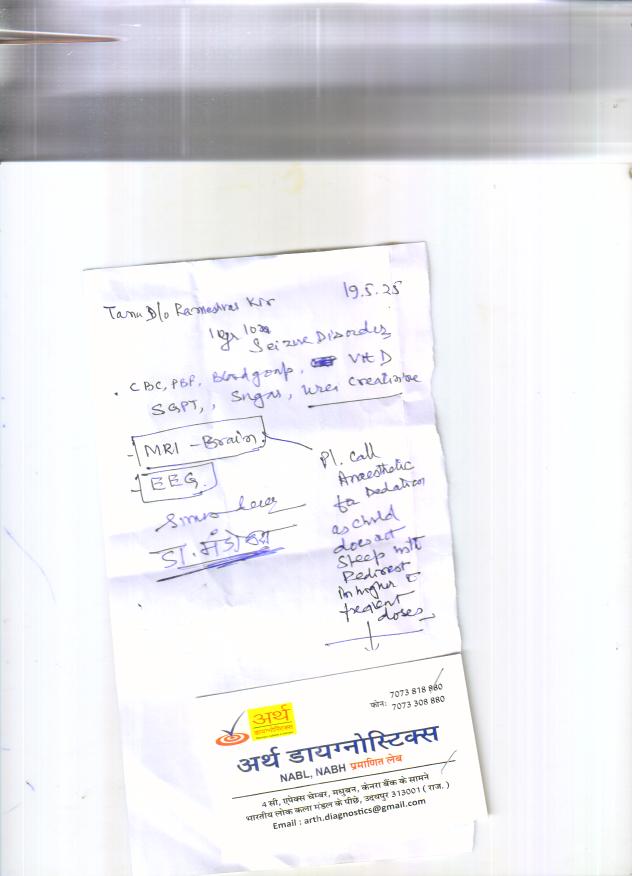 Tanu D/o Rameshwar Kir
19.5.25
Seizure Disorder
CBC, PBF, Blood group, Vit D
SGPT, , Sugar, Urea Creatinine
MRI - Brain
EEG.
Pl. Call
Anaesthetic
for Sedation
as child
does not
Sleep with
Pedicrest
in higher
freqent
doses
डा. मंडोवरा
7073 818 880
फोन: 7073 308 880
अर्थ
डायग्नोस्टिक्स
अर्थ डायग्नोस्टिक्स
NABL, NABH प्रमाणित लेब
4 सी, एपेक्स चेम्बर, मधुबन, केनरा बैंक के सामने
भारतीय लोक कला मंडल के पीछे, उदयपुर 313001 ( राज. )
Email : arth.diagnostics@gmail.com